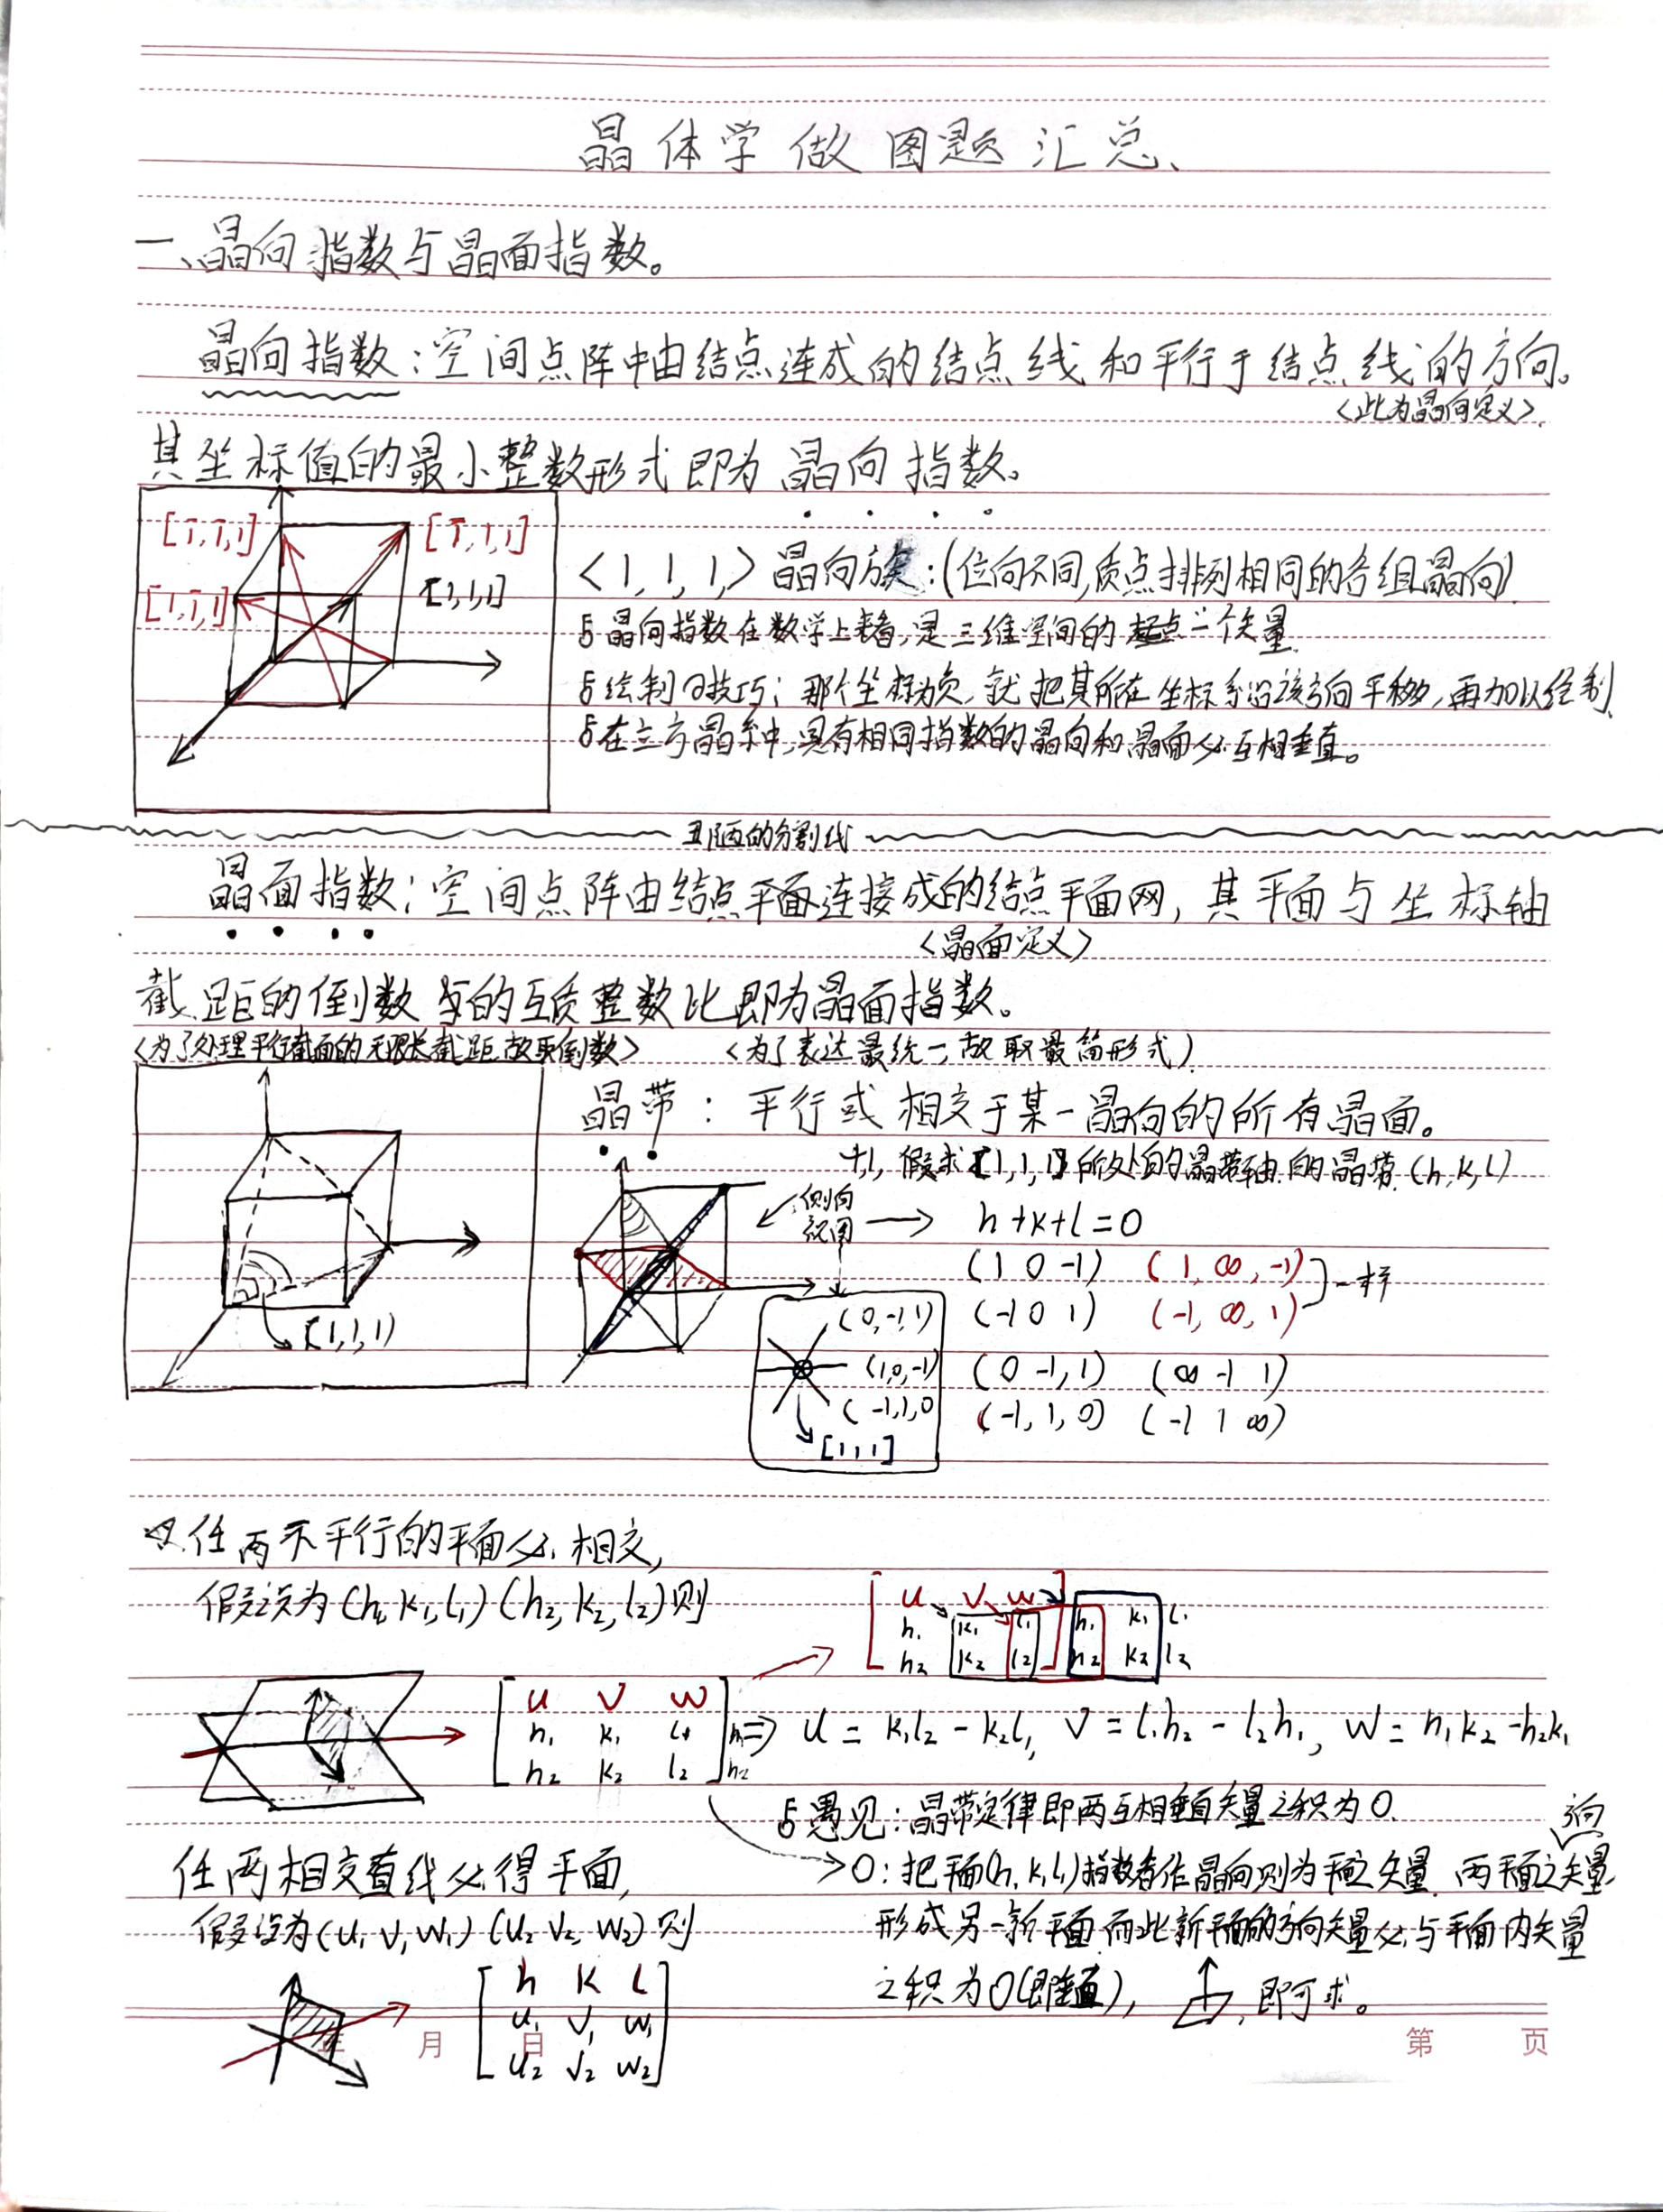 晶体学做图题汇总、
一、晶向指数与晶面指数。
晶向指数：空间点阵中由结点连成的结点线和平行于结点线的方向。
<此为晶向定义>.
其坐标值的最小整数形式即为晶向指数。
[1̄,1̄,1]
[1̄,1,1]
[1,1̄,1]
[1,1,1]
<1,1,1,>晶向族:(位向不同,质点排列相同的各组晶向)
晶向指数在数学上来看,是三维空间的一个矢量.
绘制の技巧：那个坐标为负,就把其所在坐标系沿该方向平移,再加以绘制.
在立方晶系中,具有相同指数的晶向和晶面必互相垂直。
丑陋的分割线
晶面指数：空间点阵由结点平面连接成的结点平面网，其平面与坐标轴
<晶面定义>
截距的倒数的互质整数比即为晶面指数。
<为了处理平行截面的无限长截距故取倒数>
<为了表达最统一,故取最简形式)
晶带：平行或相交于某一晶向的所有晶面。
假求[1,1,1]所处的晶带轴的晶带.(h,k,l)
侧向
视图
h+k+l=0
(1 0 -1) (1,∞,-1)
一样
(-1 0 1) (-1,∞,1)
(0 -1,1) (∞ -1 1)
(-1,1,0) (-1 1 ∞)
(1,1,1)
(0,-1,1)
(1,0,-1)
(-1,1,0
[1,1,1]
任两不平行的平面必相交,
假设为(h₁ k₁,l₁)(h₂,k₂,l₂)则
u v w
h₁ k₁ l₁ h₁ k₁ l₁
h₂ k₂ l₂ h₂ k₂ l₂
u v w
h₁ k₁ l₁ h₁
h₂ k₂ l₂ h₂
⇒ u = k₁l₂ - k₂l₁, v = l₁h₂ - l₂h₁, w = h₁k₂ - h₂k₁
愚见：晶带定律即两互相垂直矢量之积为0.
0：把平面(h,k,l)指数看作晶向则为平面之矢量.两平面之方向矢量
形成另一新平面,而此新平面的方向矢量必与平面内矢量
之积为0(即垂直),
,即可求。
任两相交直线必得平面,
假设为(u₁ v₁ w₁)(u₂ v₂ w₂)则
h k l
u₁ v₁ w₁
u₂ v₂ w₂
年 月 日
第 页